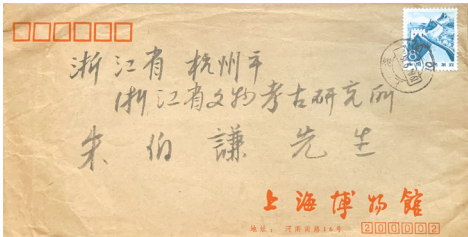 浙江省 杭州市
浙江省文物考古研究所
朱伯謙 先生
上海博物館
地址：河南南路16号
200002